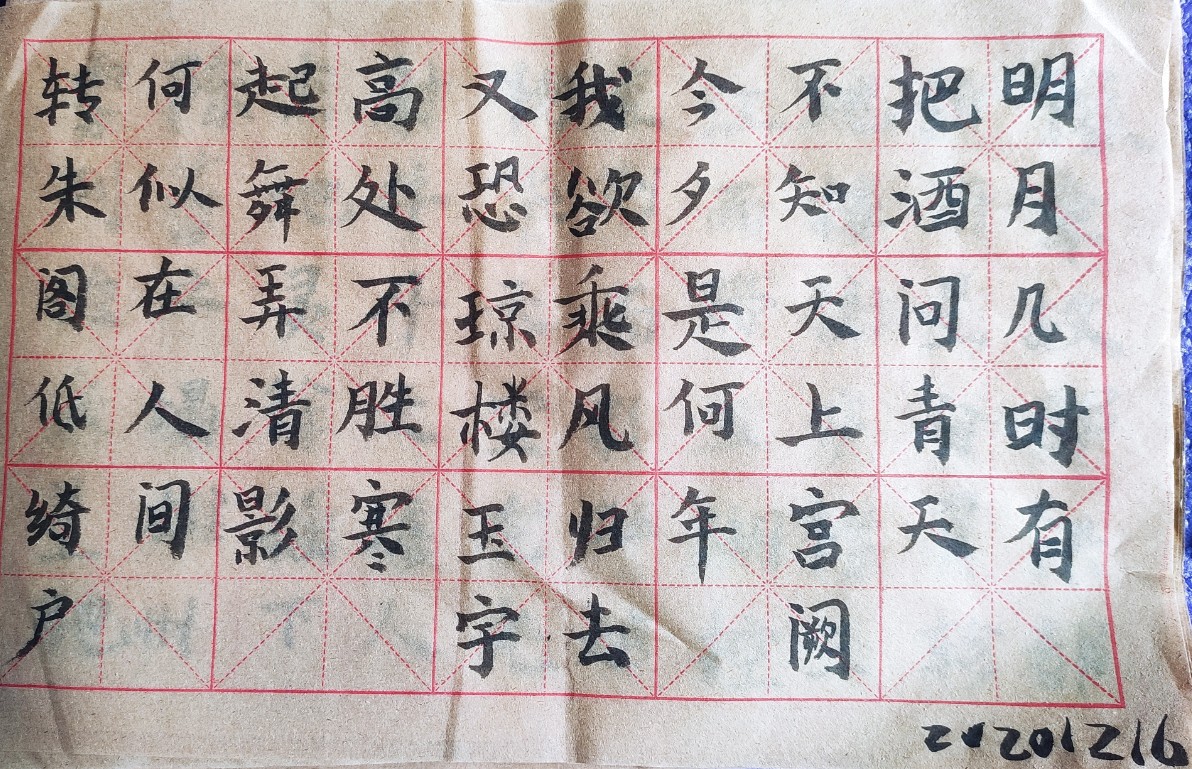 明月几时有
把酒问青天
不知天上宫阙
今夕是何年
我欲乘风归去
又恐琼楼玉字
高处不胜寒
起舞弄清影
何似在人间
转朱阁低绮户
20201216